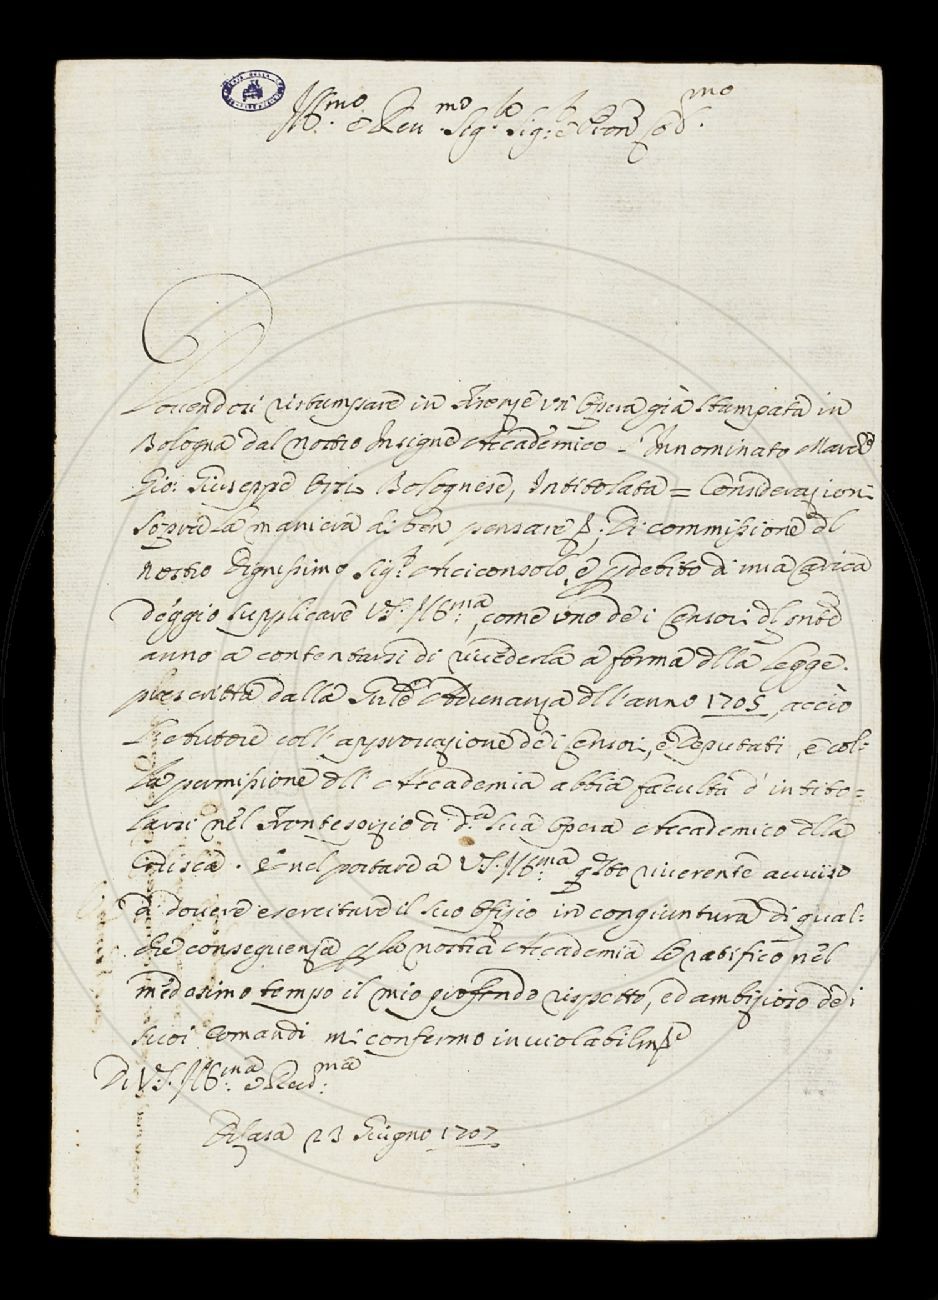 Ill.mo e Rev.mo Sig.re Sig.re e Pron Col.mo
Dovendosi ristampare in Firenze un' Opera già stampata in
Bologna dal nostro Insigne Accademico l'Innominato March.e
Gio: Giuseppe Orsi Bolognese, Intitolata = Considerazioni
sopra la maniera di ben pensare &; Di commissione del
nostro Dignissimo Sig.r Arciconsolo, e p debito di mia carica
deggio supplicare VS. Ill.ma, come uno de i Censori dl
anno a contentarsi di rivederla a forma dlla Legge
prescritta dalla Ordinanza dll'anno 1705, acciò
l'Autore coll'approvazione de i Censori, e Deputati, e col:
la permissione dll' Accademia abbia facultà d'intito=
larsi nel Frontespizio di d.a sua Opera Accademico dlla
Crusca. E nel portare a VS. Ill.ma riverente avviso
di dovere esercitare il suo Ofizio in congiuntura di qual:
che conseguenza p la nostra Accademia le ratifico nel
medesimo tempo il mio profondo rispetto, ed ambizioso de i
suoi Comandi mi confermo inviolabilm.e
Di VS. Ill.ma e Rev.ma
Di Casa 23 Giugno 1707